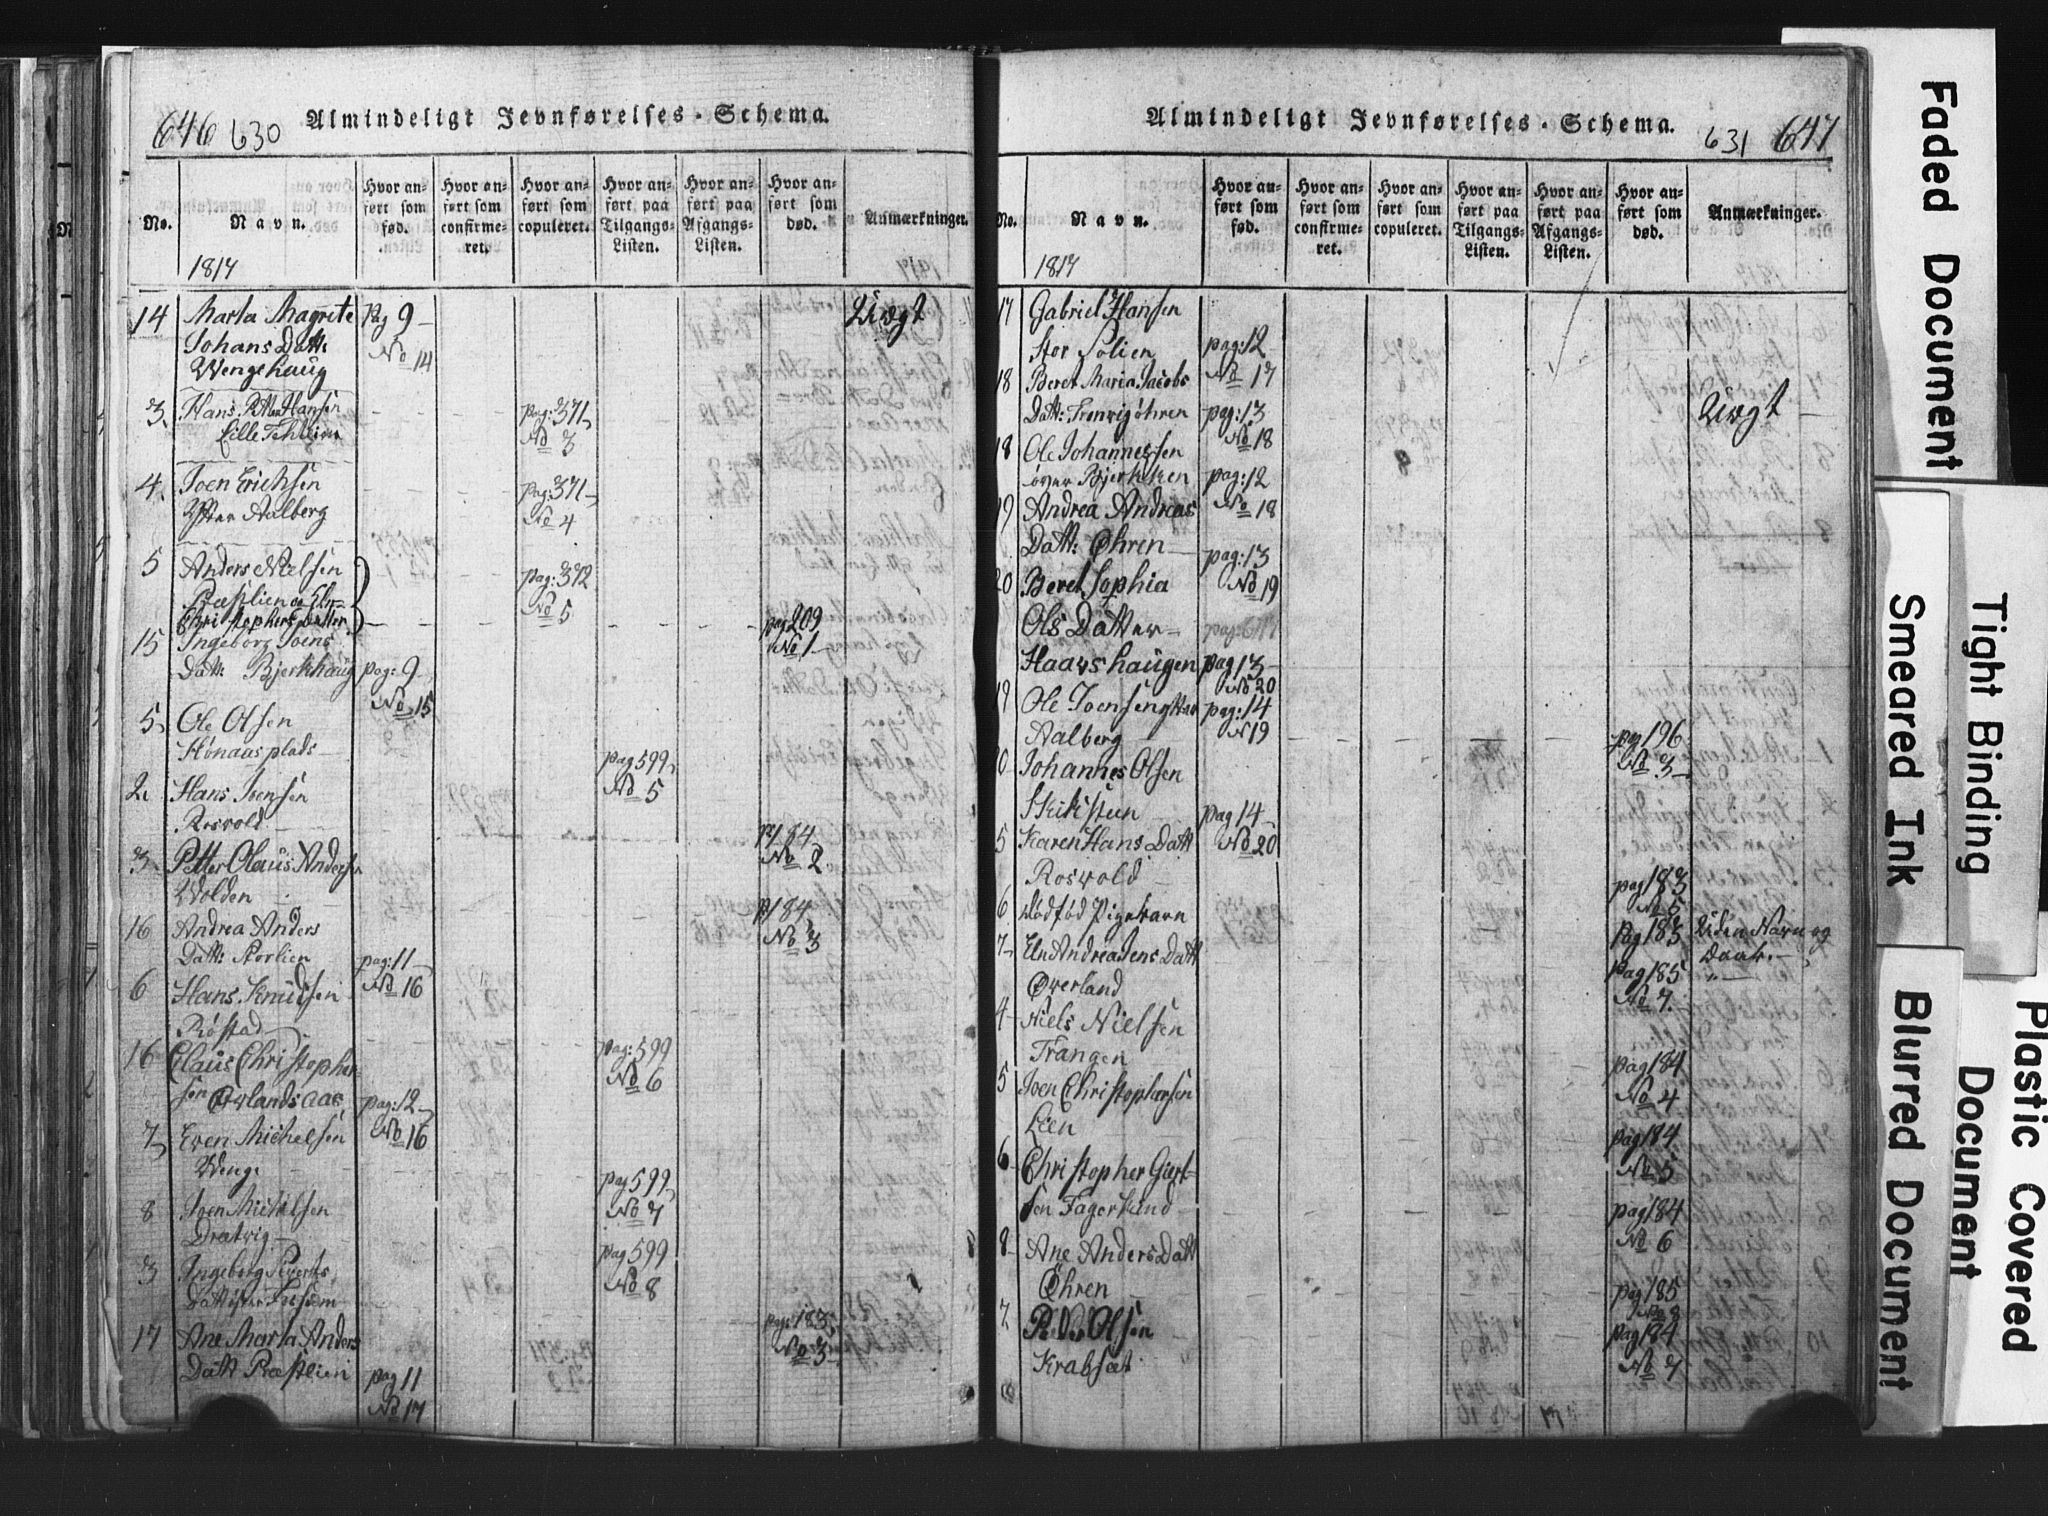 646 630
Almindeligt Jevnførelses-Schema.
No.
Navn.
Hvor an-
ført som
fød.
Hvor an-
ført som
confirme-
ret.
Hvor an-
ført som
copuleret.
Hvor an-
ført paa
Tilgangs-
Listen.
Hvor an-
ført paa
Afgangs-
Listen.
Hvor an-
ført som
død.
Anmærkninger.
1817
14 Marta Magrete Pag 9
Johans Datt: No 14
Wengshaug
Uægt
3 Hans Petter Hansen pag: 371
No 3
4. Joen Erichsen pag: 371
Ytter Aalberg No 4
5 Anders Nielsen pag: 372
Præstlien og
Christophers Datter No 5
pag 209
No 1
15 Ingeborg Joens
Datt: Bjerkhaug pag: 9
No 15
5 Ole Olsen
Hönaasplads pag 599
No 5
2 Hans Jensen
Rosvold p 184
No 2
3 Petter Olaus Andersen
Wolden p 184
No 3
16 Andrea Anders
Datt: Storlien pag: 11
No 16
6 Hans Knudsen
Röstad pag: 599
No 6
16 Claus Christopher-
sen Øvrlandsaas pag: 12
No 16
7 Even Michelsen
Wenge pag 599
No 7
8 Joen Michelsen
Dratvig pag 599
No 8
3 Ingeborg Siverts
pag: 183
No 3
17 Ane Marta Anders
Datt Præstlien pag 11
No 17
Almindeligt Jevnførelses-Schema.
631 647
No.
Navn.
Hvor an-
ført som
fød.
Hvor an-
ført som
confirme-
ret.
Hvor an-
ført som
copuleret.
Hvor an-
ført paa
Tilgangs-
Listen.
Hvor an-
ført paa
Afgangs-
Listen.
Hvor an-
ført som
død.
Anmærkninger.
1817
17 Gabriel Hansen
Stor Solien pag: 12
No 17
18 Beret Maria Jacobs
Datt: öhren pag: 13
No 18
Uægt
18 Ole Johannessen
over Bjerkken pag: 12
No 18
19 Andrea Andreas
Datt: Øhren pag: 13
No 19
20 Beret Sophia
Ols Datter
Haarshaugen pag 13
No 20
19 Ole Joensen ytter pag: 14
Aalberg N 19
pag 196
No 3
20 Johannes Olsen
pag 14
No 20
5 Karen Hans Datt
Rosvold pag 183
No 5
6 Dödföd Pigebarn pag 183
Uden Navn og
Daab.
7 Eln Andrea Jens Datt pag 185
Øverland No 7
4 Niels Nielsen
Trangen pag 184
No 4
5 Joen Christophersen
Leen pag 184
No 5
6 Christopher Giert-
sen pag 184
No 6
8 Ane Anders Datt
Öhren pag 185
No 8
7 Peder Olsen pag 184
Krabsæt No 7
Faded Document
Tight Binding
Smeared Ink
Plastic Covered
Document
Blurred Document